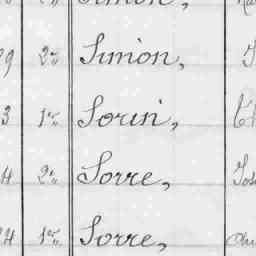 9 2e Simon,
3 1re Sorin,
4 2e Sorre,
4 1re Sorre,